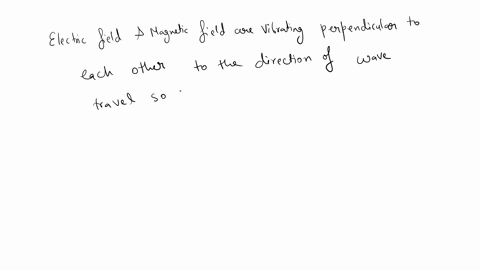 Electric field & Magnetic field are vibrating perpendicular to
each other to the direction of wave
travel so